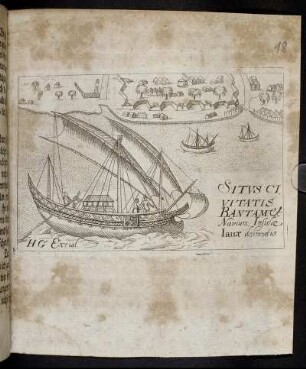 18
SITVS CI
VITATIS
BANTAM &
Navium Insulæ
Iauæ delineatio
HG Excud.